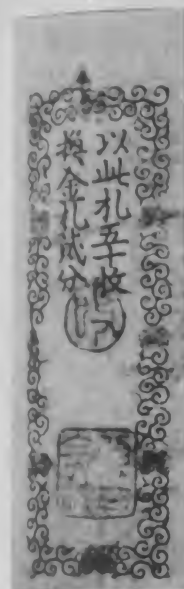 以此札五十枚
換金札貮分